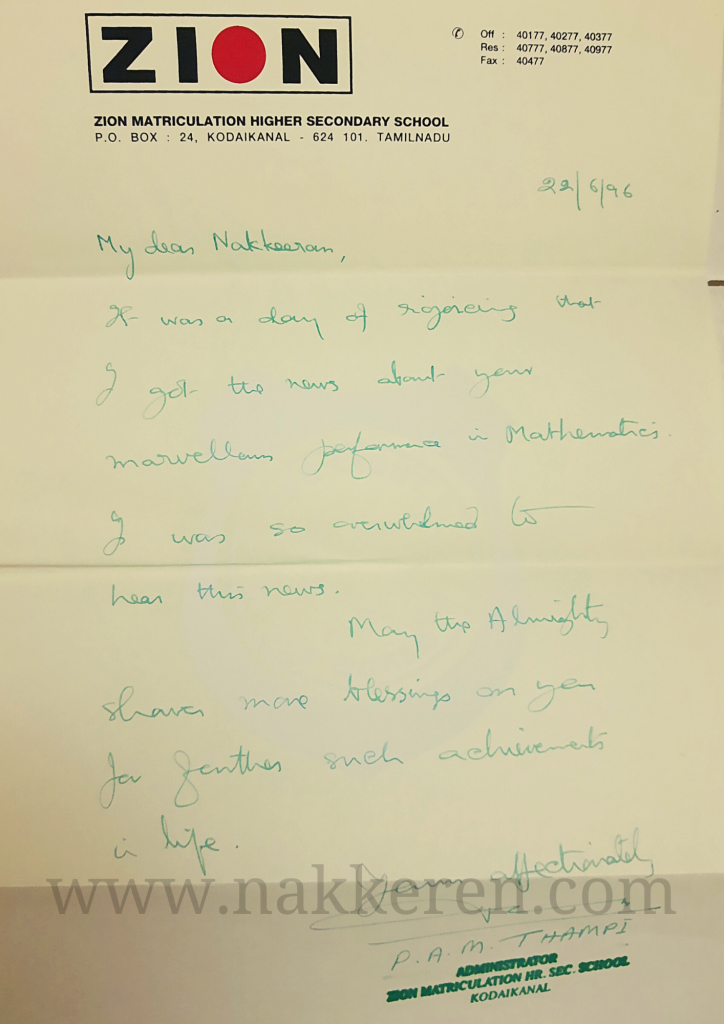 ZION
✆ Off : 40177, 40277, 40377
Res : 40777, 40877, 40977
Fax : 40477
ZION MATRICULATION HIGHER SECONDARY SCHOOL
P.O. BOX : 24, KODAIKANAL - 624 101. TAMILNADU
22/6/96
My dear Nakkeeran,
It was a day of rejoicing that
I got the news about your
marvellous performance in Mathematics.
I was so overwhelmed to
hear this news.
May the Almighty
shower more blessings on you
for further such achievements
in life.
Yours affectionately
www.nakkeren.com
P.A.M. THAMPI
ADMINISTRATOR
ZION MATRICULATION HR. SEC. SCHOOL
KODAIKANAL